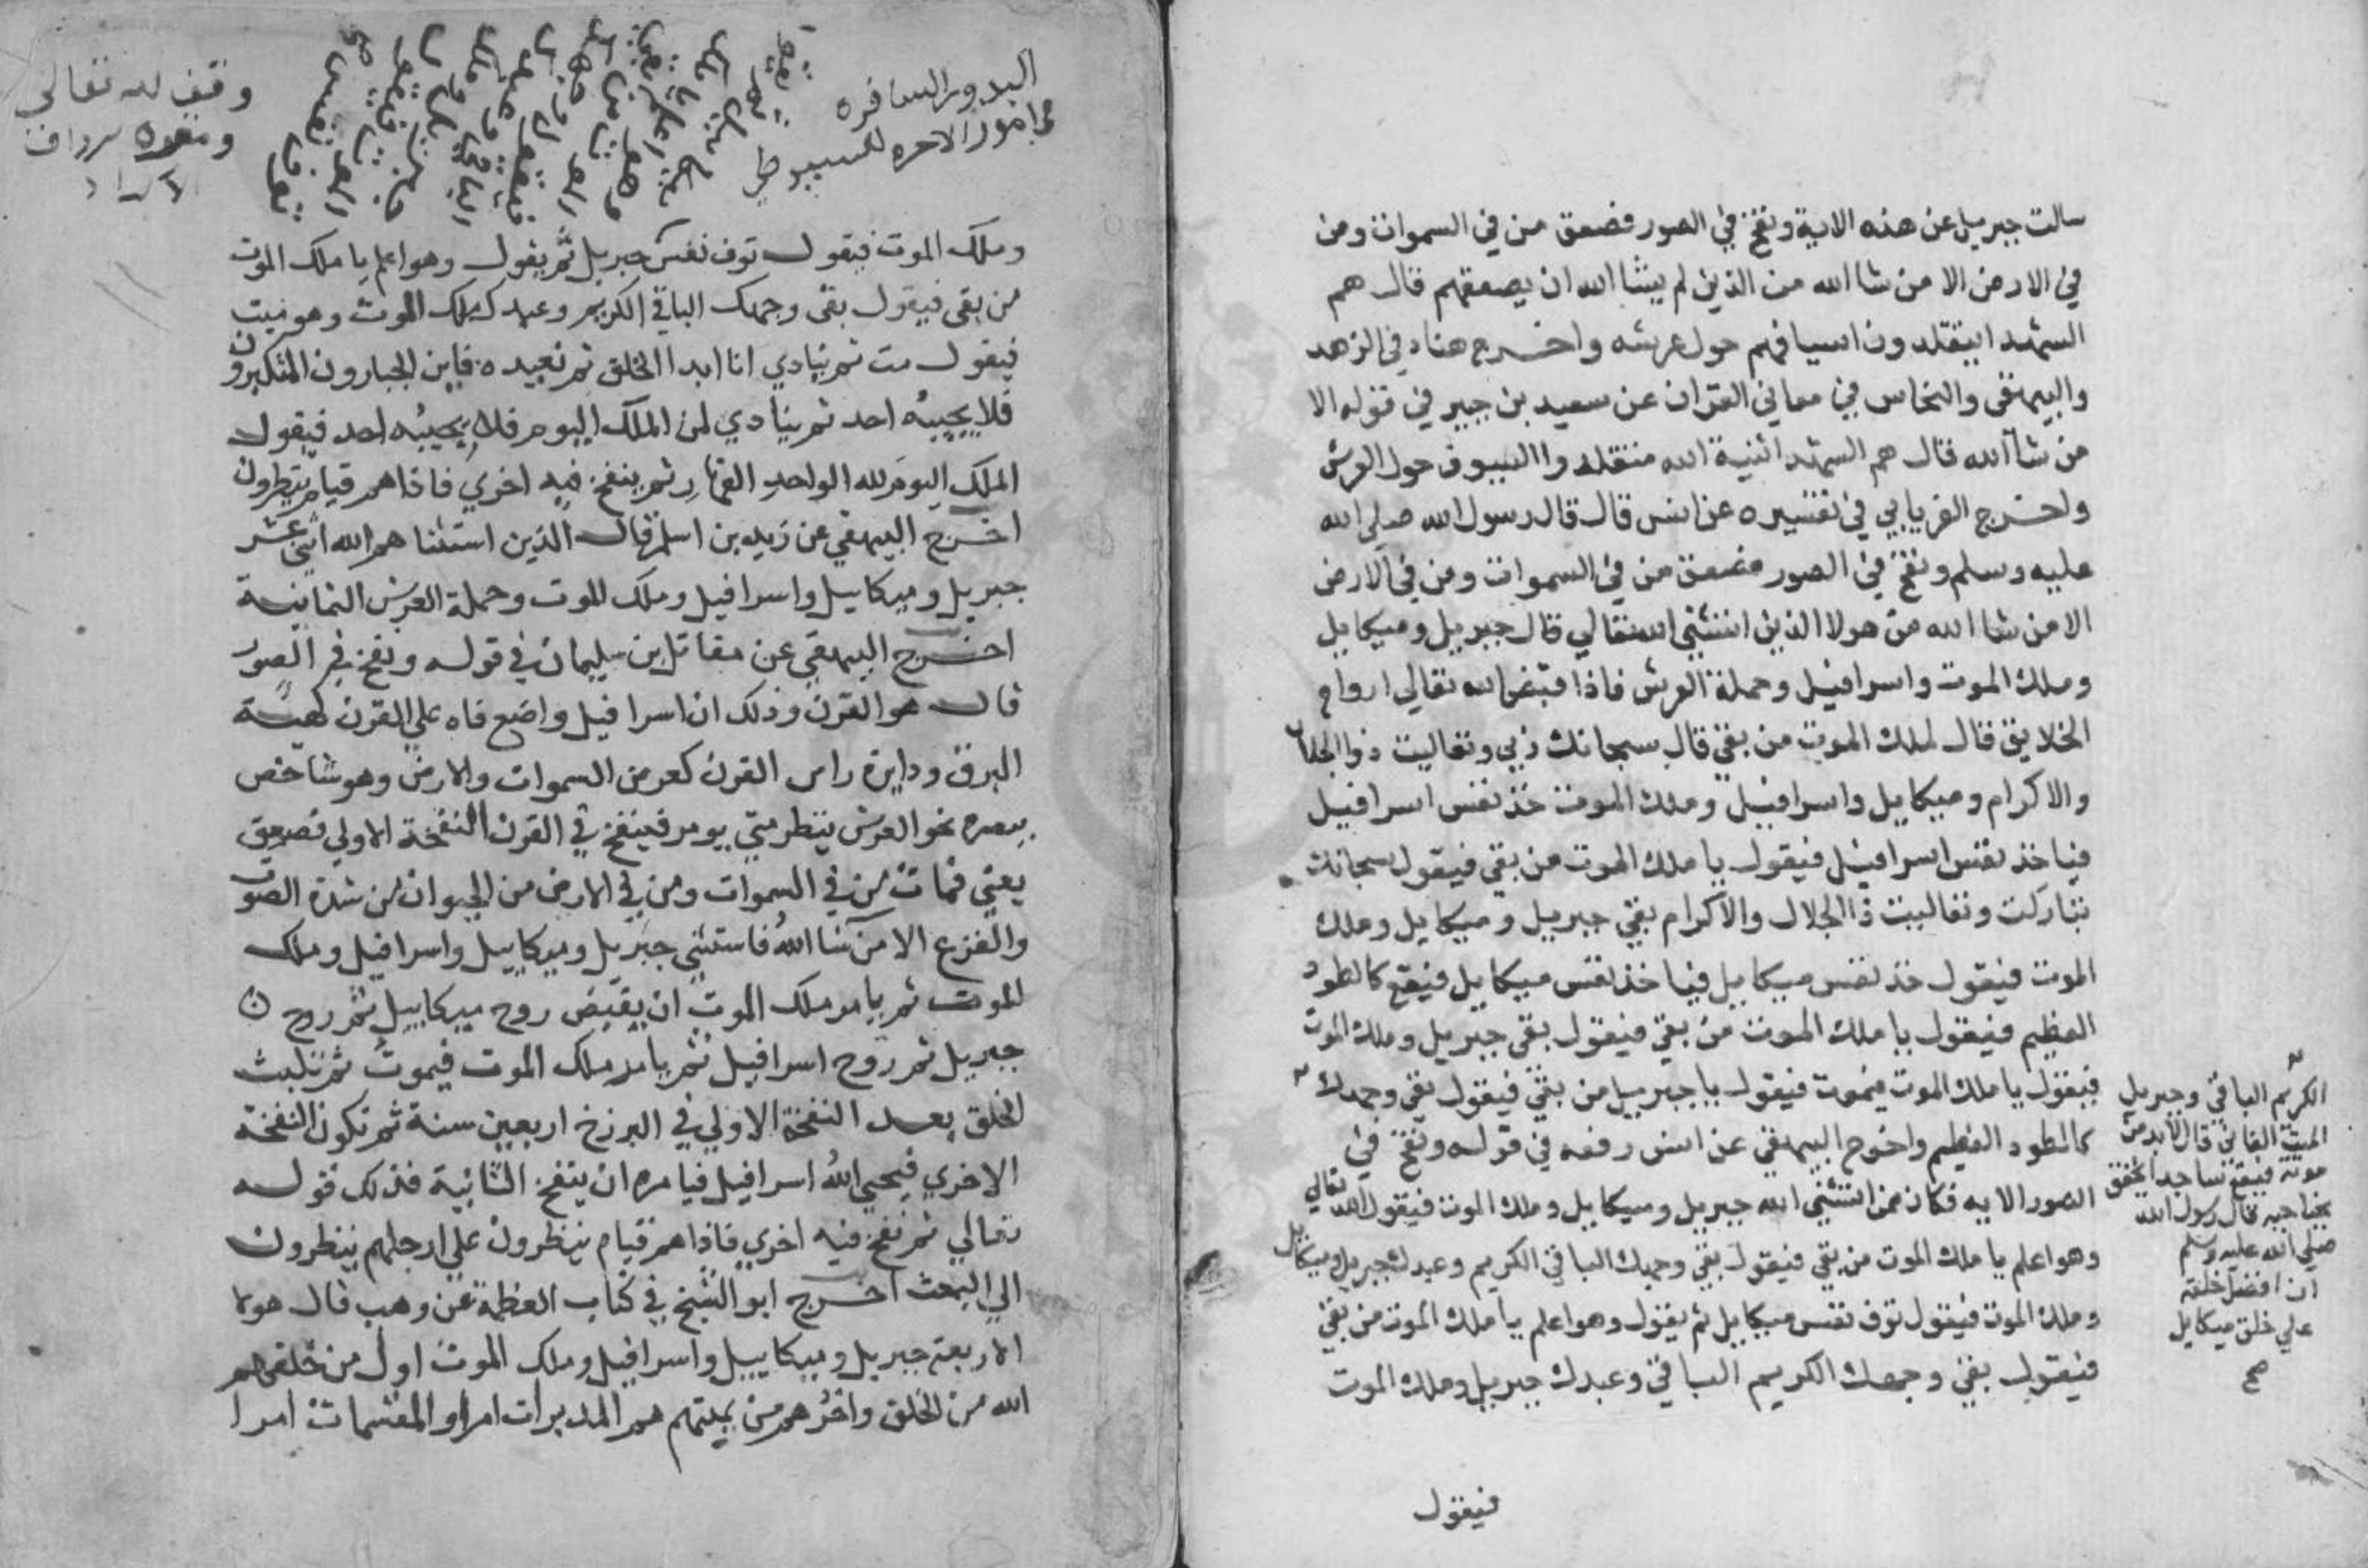 سالت جبريل عن هذه الاية ونفخ في الصور فصعق من في السموات ومن
في الارض الا من شا الله من الذين لم يشا الله ان يصعقهم قال هم
الشهدا يتقلدون اسيافهم حول عرشه واخرج هناد في الزهد
والبيهقي والنحاس في معاني القران عن سعيد بن جبير في قوله الا
من شآ الله قال هم الشهدا ثنية الله متقلدوا السيوف حول العرش
واخرج الفريابي في تفسيره عن انس قال قال رسول الله صلي الله
عليه وسلم ونفخ في الصور فصعق من في السموات ومن في الارض
الا من شا الله من هولا الذين استثني الله تعالي قال جبريل وميكايل
وملك الموت واسرافيل وحملة العرش فاذا قبض الله تعالي ارواح
الخلايق قال لملك الموت من بقي قال سبحانك ربي وتعاليت ذو الجلال
والاكرام وميكايل واسرافيل وملك الموت خذ نفس اسرافيل
فياخذ نفس اسرافيل فيقول يا ملك الموت من بقي فيقول سبحانك
تباركت وتعاليت ذا الجلال والاكرام بقي جبريل وميكايل وملك
الموت فيقول خذ نفس ميكايل فياخذ نفس ميكايل فيقع كالطود
العظيم فيقول يا ملك الموت من بقي فيقول بقي جبريل وملك الموت
فيقول يا ملك الموت فيموت فيقول يا جبريل من بقي فيقول بقي وجهك
الكريم الباقي وجبريل
الميت الفاني قال لابد من
موته فيقع ساجدا يخفق
بجناحيه قال رسول الله
صلي الله عليه وسلم
ان افضل خلقه
علي خلق ميكايل
صح
كالطود العظيم واخرج البيهقي عن انس رفعه في قوله ونفخ في
الصور الايه فكان ممن استثني الله جبريل وميكايل وملك الموت فيقول الله تعالي
وهو اعلم يا ملك الموت من بقي فيقول بقي وجهك الباقي الكريم وعبدك جبريل وميكايل
وملك الموت فيقول توف نفس ميكايل ثم يقول وهو اعلم يا ملك الموت من بقي
فيقول بقي وجهك الكريم الباقي وعبدك جبريل وملك الموت
فيقول
البدور السافره
امور الاخره للسيوطي
وقف لله تعالي
وملك الموت فيقول توف نفس جبريل ثم يقول وهو اعلم يا ملك الموت
من بقي فيقول بقي وجهك الباقي الكريم وعبدك ملك الموت وهو ميت
فيقول مت ثم ينادي انا ابدا الخلق ثم نعيده فاين الجبارون المتكبرون
فلا يجيبه احد ثم ينادي لمن الملك اليوم فلا يجيبه احد فيقول
الملك اليوم لله الواحد القهار ثم ينفخ فيه اخري فاذا هم قيام ينظرون
اخرج البيهقي عن زيد بن اسلم قال الذين استثنا هم الله اثني عشر
جبريل وميكاييل واسرافيل وملك الموت وحملة العرش الثمانية
اخرج البيهقي عن مقاتل بن سليمان في قوله ونفخ في الصور
قال هو القرن وذلك ان اسرافيل واضع فاه علي القرن كهيئة
البوق ودايرة راس القرن كعرض السموات والارض وهو شاخص
ببصره نحو العرش ينتظر متي يومر فينفخ في القرن النفخة الاولي فصعق
يعني فمات من في السموات ومن في الارض من الحيوان من شدة الصوت
والفزع الا من شا الله فاستثني جبريل وميكاييل واسرافيل وملك
الموت ثم يامر ملك الموت ان يقبض روح ميكاييل ثم روح
جبريل ثم روح اسرافيل ثم يامر ملك الموت فيموت ثم تلبث
الخلق بعد النفخة الاولي في البرزخ اربعين سنة ثم تكون النفخة
الاخري فيحيي الله اسرافيل فيامره ان ينفخ الثانية فذلك قوله
تعالي ثم نفخ فيه اخري فاذا هم قيام ينظرون علي ارجلهم ينظرون
الي البعث اخرج ابو الشيخ في كتاب العظمة عن وهب قال هولا
الاربعة جبريل وميكاييل واسرافيل وملك الموت اول من خلقهم
الله من الخلق واخر من يميتهم هم المدبرات امرا والمقسمات امرا